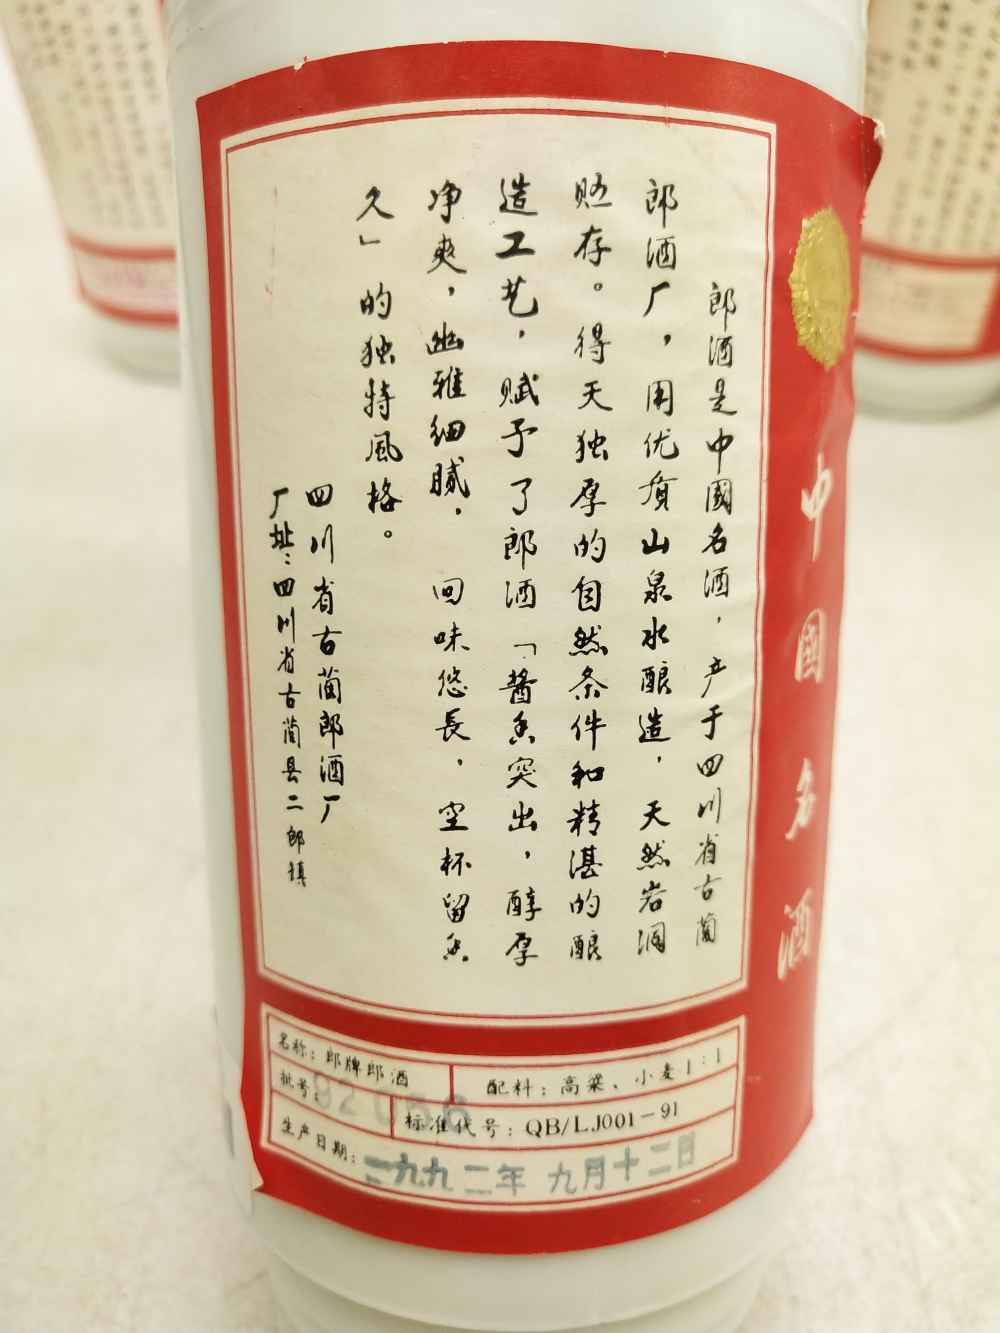 中國名酒
郎酒是中國名酒，产于四川省古藺
郎酒厂，用优质山泉水酿造，天然岩洞
贮存。得天独厚的自然条件和精湛的酿
造工艺，赋予了郎酒「酱香突出，醇厚
净爽，幽雅细腻，回味悠長，空杯留香
久」的独特風格。
四川省古藺郎酒厂
厂址：四川省古藺县二郎镇
名称：郎牌郎酒
配料：高粱、小麦1：1
批号：92056
标准代号：QB/LJ001-91
生产日期：一九九二年九月十二日